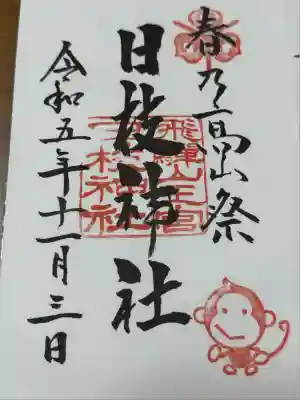 春乃高山祭
日枝神社
飛騨山王宮
日枝神社
令和五年十一月三日